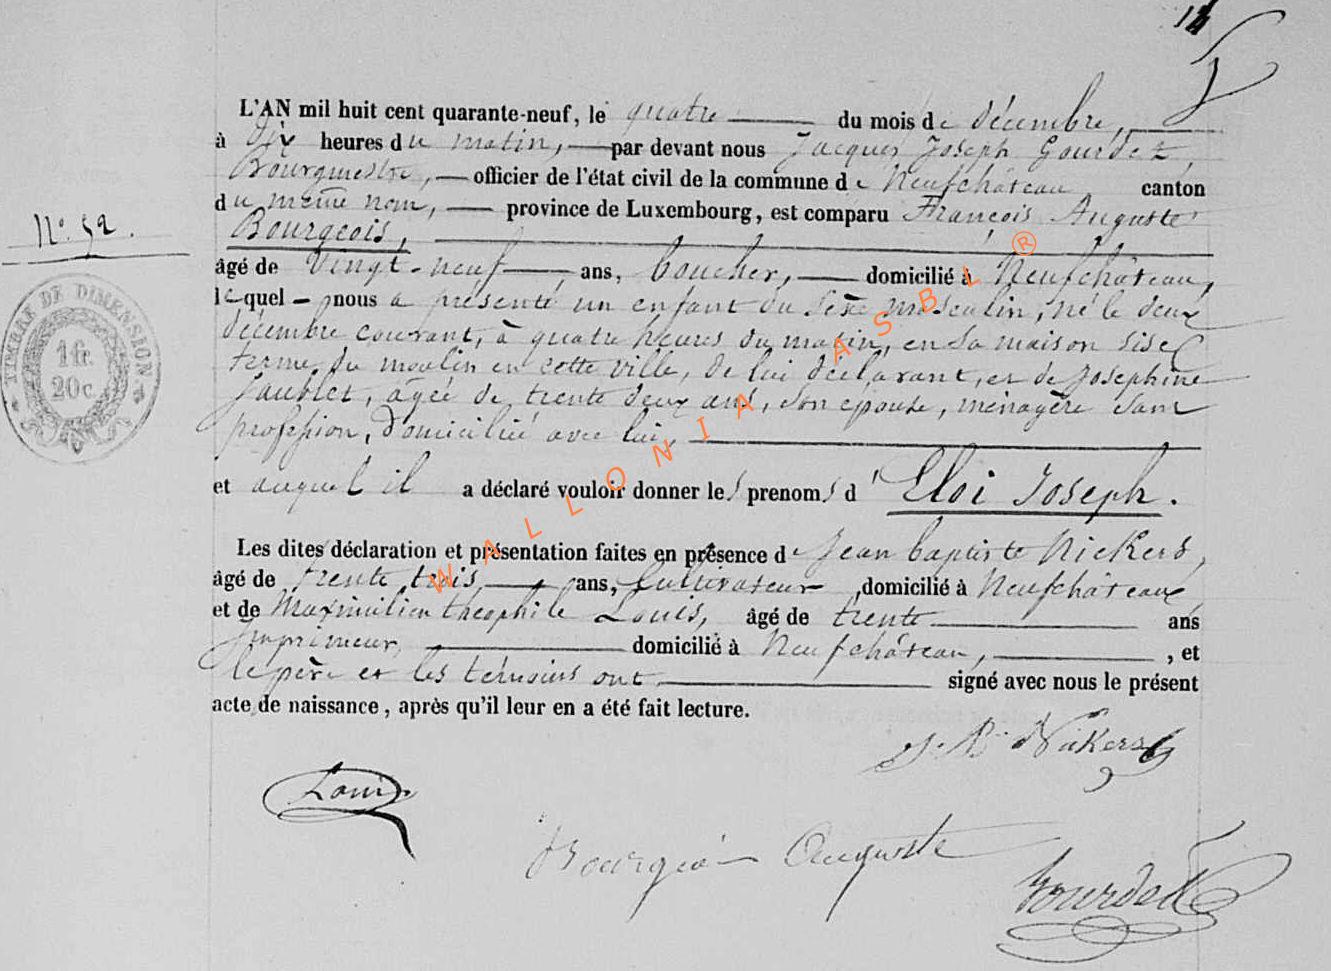 14
L'AN mil huit cent quarante-neuf, le quatre du mois de décembre,
à dix heures du matin, par devant nous Jacques Joseph Gourdet,
Bourgmestre, officier de l'état civil de la commune de Neufchâteau, canton
du même nom, province de Luxembourg, est comparu François Auguste
N.° 52.
Bourgeois,
âgé de Vingt-neuf ans, boucher, domicilié à Neufchâteau,
lequel nous a présenté un enfant du sexe masculin, né le deux
décembre courant, à quatre heures du matin, en sa maison sise
ferme du moulin en cette ville, de lui déclarant, et de Joséphine
Jaublet, âgée de trente deux ans, son épouse, ménagère sans
profession, domiciliée avec lui,
et auquel il a déclaré vouloir donner les prenoms d'Eloi Joseph.
Les dites déclaration et présentation faites en présence de Jean baptiste Nickers,
âgé de trente trois ans, Cultivateur, domicilié à Neufchâteau
et de Maximilien théophile Louis, âgé de trente ans
Imprimeur, domicilié à Neufchâteau, , et
le père et les témoins ont signé avec nous le présent
acte de naissance, après qu'il leur en a été fait lecture.
J. B. Nickers
Louis
Bourgeois Auguste
Gourdet
TIMBRE DE DIMENSION
1 fr.
20 c.
WALLONIA ASBL ®